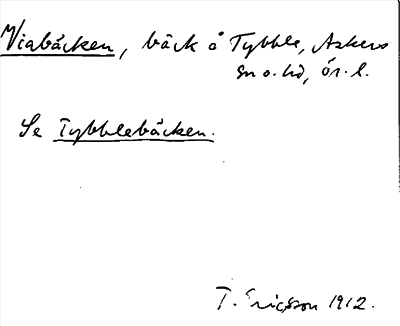 Viabäcken, bäck å Tybble, Askers
sn o. hd, Ör. l.
Se Tybblebäcken.
T. Ericsson 1912.